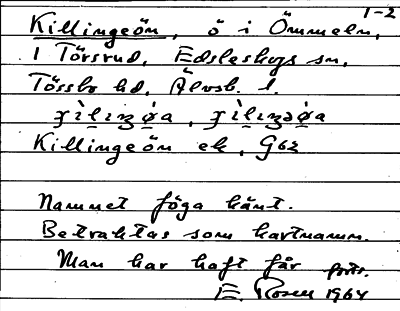 1-2
Killingeön, ö i Ömmeln,
i Törsrud, Edsleskogs sn,
Tössbo hd, Älvsb. l.
Killingeön ek. G62
Namnet föga känt.
Betraktas som kartnamn.
Man har haft får forts.
E. Rosen 1964